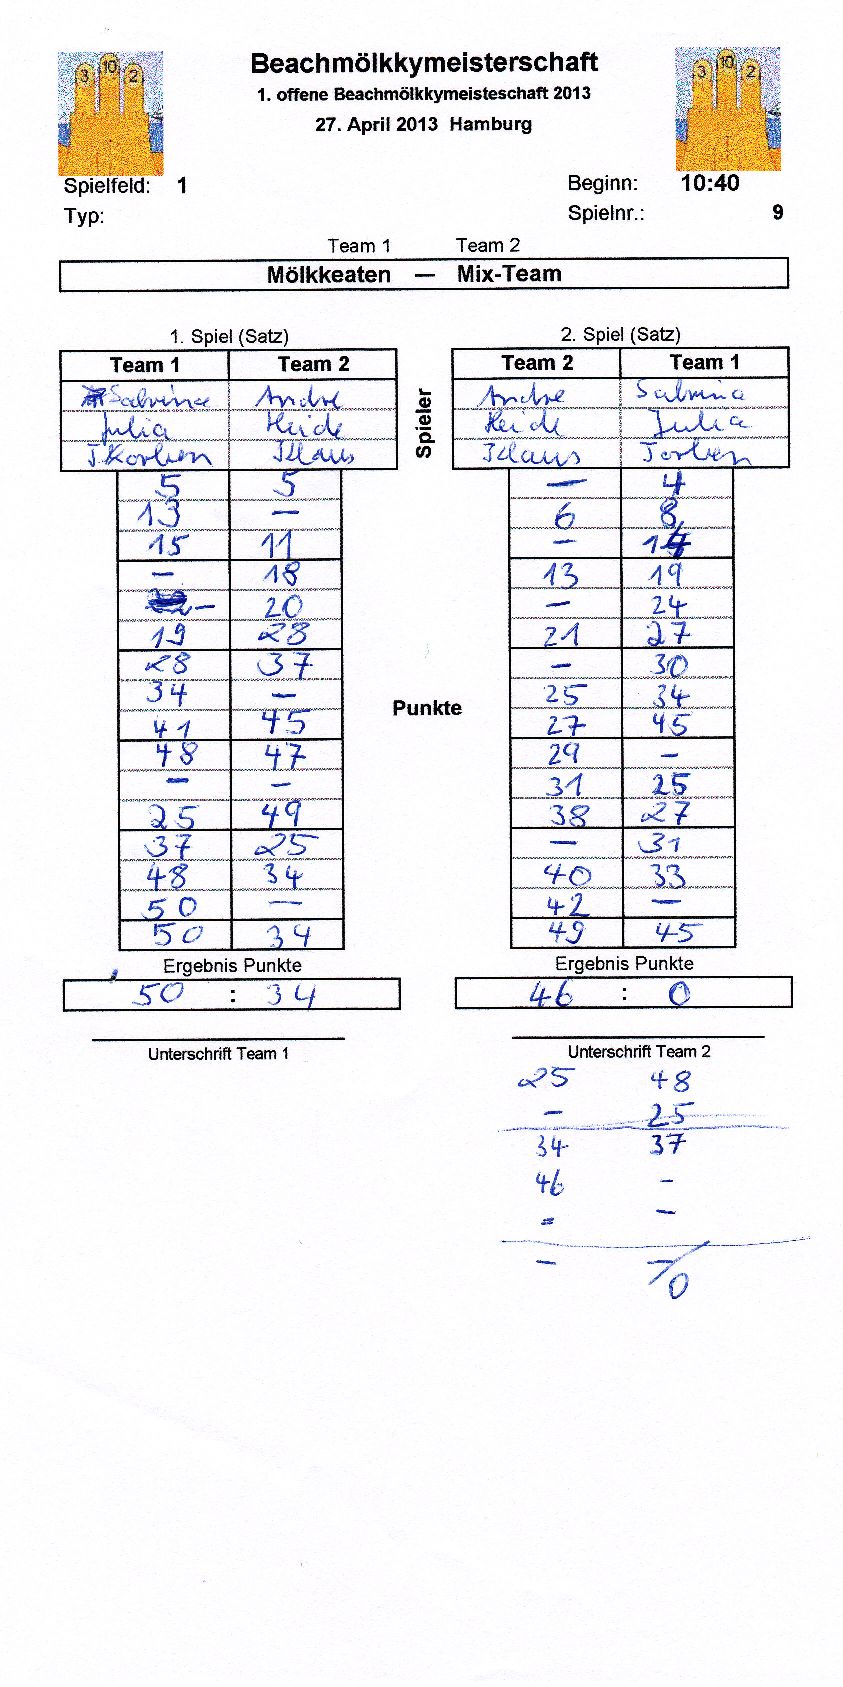 3 10 2
Beachmölkkymeisterschaft
3 10 2
1. offene Beachmölkkymeisteschaft 2013
27. April 2013 Hamburg
Spielfeld: 1 Beginn: 10:40
Typ: Spielnr.: 9
Team 1 Team 2
Mölkkeaten — Mix-Team
1. Spiel (Satz) 2. Spiel (Satz)
Team 1 Team 2 Team 2 Team 1
Sabrina Andre Andre Sabrina
Julia Heide Heide Julia
Klaus Klaus Torben
Spieler
5 5 — 4
13 — 6 8
15 11 — 14
— 18 13 19
— 20 — 24
19 28 21 27
28 37 — 30
34 — 25 34
41 45 27 45
Punkte
48 47 29 —
— — 31 25
25 49 38 27
37 25 — 31
48 34 40 33
50 — 42 —
50 34 49 45
Ergebnis Punkte Ergebnis Punkte
50 : 34 46 : 0
Unterschrift Team 1 Unterschrift Team 2
25 48
— 25
34 37
46 -
= —
— —/0